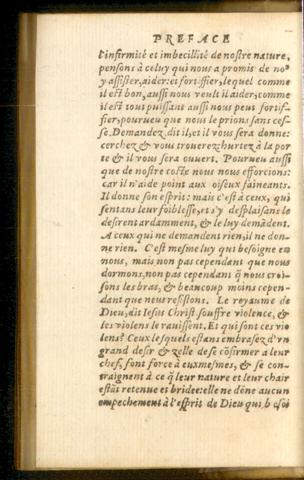 PREFACE
l'infirmité et imbecillité de nostre nature,
pensons à celuy qui nous a promis de no⁹
y assister, aider: et fortifier, lequel comme
il est bon, aussi nous veult il aider; comme
il est tous puissant aussi nous peut fortif-
fier, pourueu que nous le prions sans ces-
se. Demandez, dit il, et il vous sera donne:
cerchez & vous trouerez: hurtez à la por
te & il vous sera ouuert. Pourueu aussi
que de nostre coste nous nous efforcions:
car il n'aide point aux oiseux faineants.
Il donne son esprit: mais c'est à ceux, qui
sentans leur foiblesse, et s'y desplaisans le
desirent ardamment, & le luy demādent.
A ceux qui ne demandent rien, il ne don-
ne rien. C'est mesme luy qui besoigne en
nous, mais non pas cependant que nous
dormons, non pas cependant q̃ nous croi-
sons les bras, & beaucoup moins cepen-
dant que nous resistons. Le royaume de
Dieu, dit Iesus Christ souffre violence, &
les violens le rauissent. Et qui sont ces vio
lens? Ceux lesquels estans embrasez d'vn
grand desir & zelle de se cõfirmer a leur
chef, font force à euxmesmes, & se con-
traignent à ce q̃ leur nature et leur chair
estãt retenue et bridee: elle ne dõne aucun
empechement à l'esprit de Dieu qui